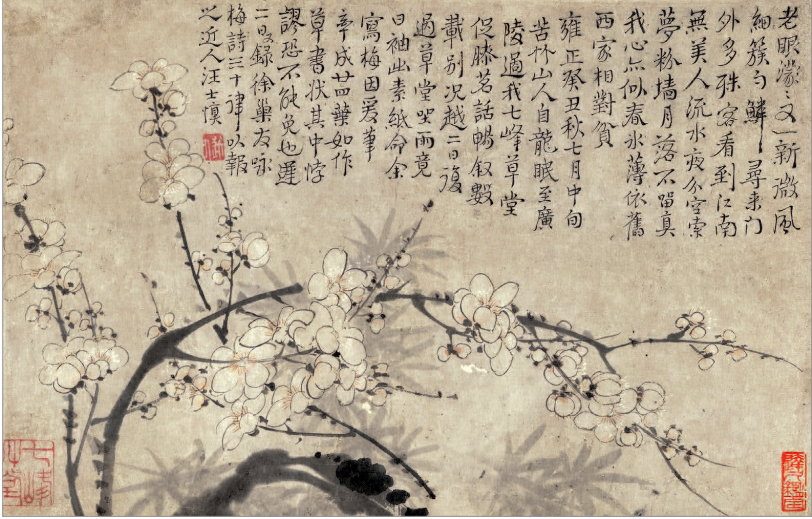 老眼濛濛又一新微風
細簇勻鱗鱗尋來门
外多殊客看到江南
無美人流水夜分空索
夢粉墻月落不留真
我心亦似春水薄依舊
西家相對貧
雍正癸丑秋七月中旬
苦竹山人自龍眠至廣
陵過我七峰草堂
促膝茗話暢叙數
載别况越二日復
過草堂坐雨竟
日袖出素紙命余
寫梅因爰筆
率成廿四葉如作
草書狀其中悖
謬恐不能免也遲
二日錄徐巢友咏
梅詩三十律以報
之近人汪士慎